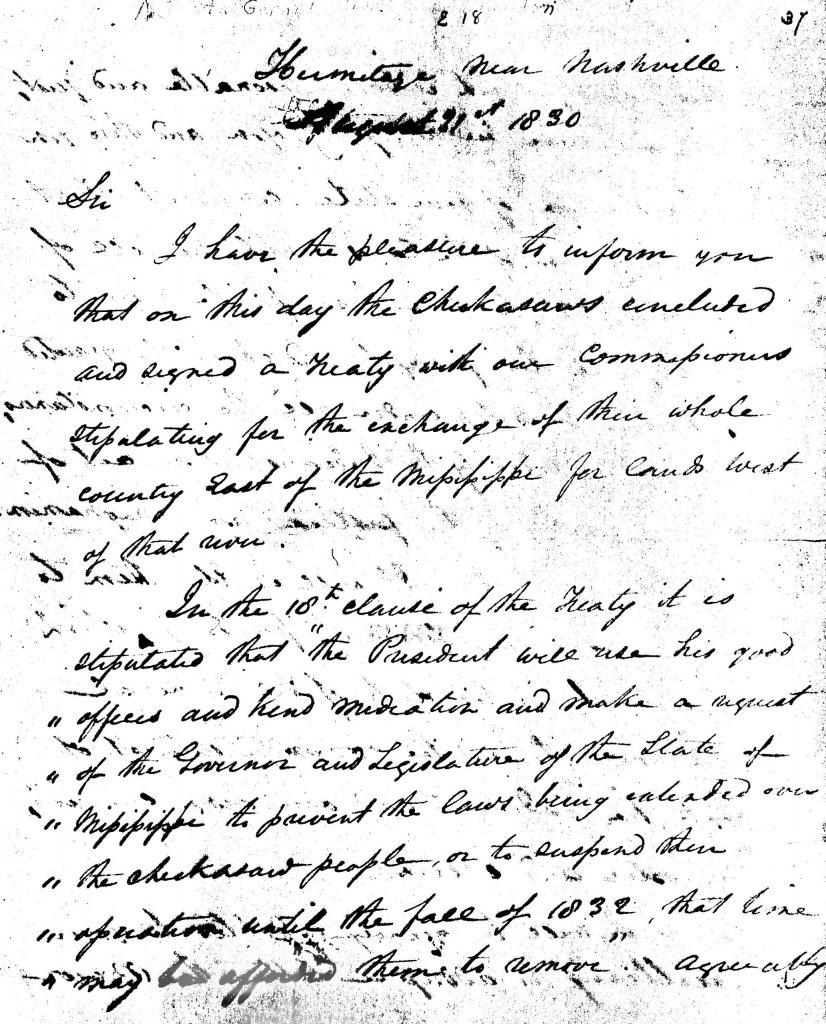 2 18
37
Hermitage near Nashville.
August 31st 1830
Sir
I have the pleasure to inform you
that on this day the Chickasaws concluded
and signed a Treaty with our Commissioners
stipulating for the exchange of their whole
country East of the Mississippi for lands west
of that river.
In the 18th clause of the Treaty it is
stipulated that "the President will use his good
" offices and kind mediation and make a request
" of the Governor and Legislature of the State of
" Mississippi to prevent the laws being extended over
" the chickasaw people, or to suspend their
" operation until the fall of 1832, that time
" may be afforded them to remove". Agreeably